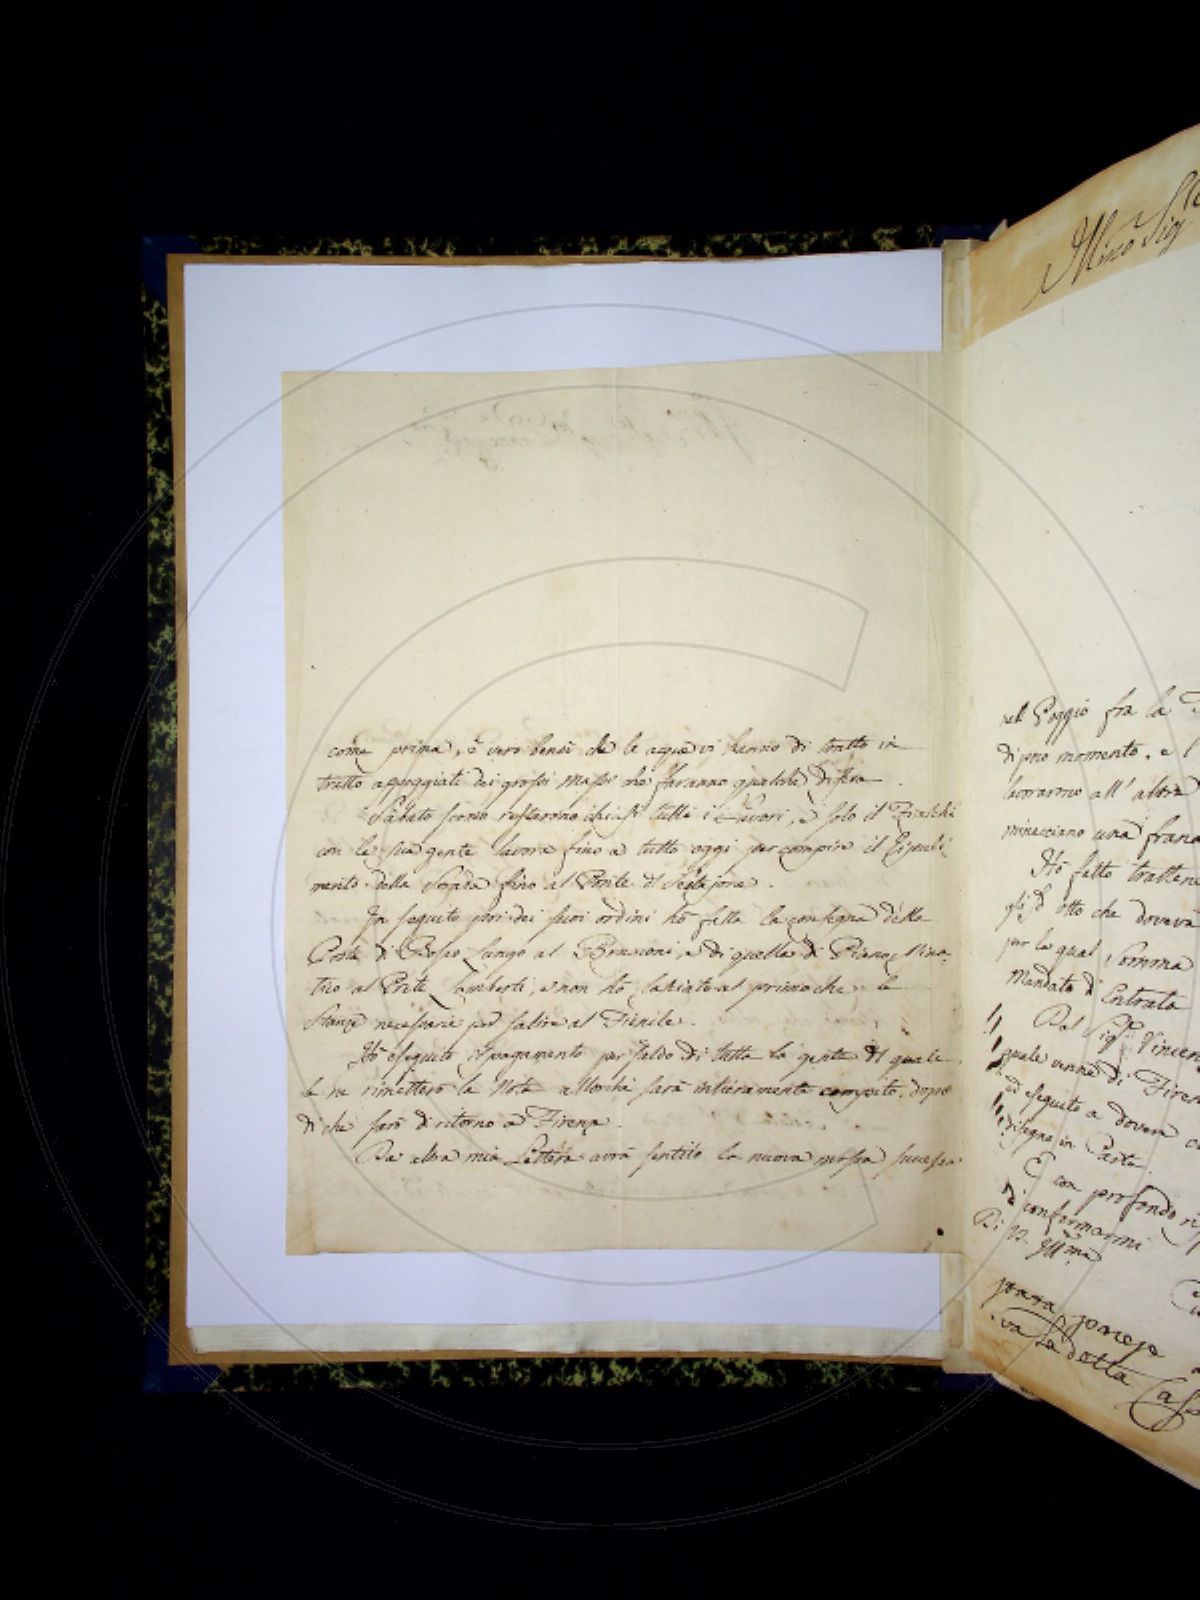 come prima, è vero bensì che le acque vi hanno di tratto in
tratto appoggiati dei grossi massi che faranno qualche difesa.
Sabato scorso restarono chiusi tutti i Lavori, e solo il Fraschi
con la sua gente lavora fino a tutto oggi per compire il Ripuli
mento della Strada fino al Ponte di Sestajone.
In seguito poi dei suoi ordini hò fatta la consegna della
Posta di Bosco Lungo al Bensioni, e di quella di Piano Sina
tico al Prete Zamberti, e non hò lasciato al primo che le
Stanze necessarie per salire al Fienile.
Hò eseguito il pagamento per saldo di tutta la gente del quale
le ne rimetterò la Nota allorchè sarà intieramente compito, dopo
di che farò di ritorno a Firenze.
Da altra mia Lettera avrà sentito la nuova mossa successa
Illmo Sig
nel Poggio fra la
di poco momento, e
lavorarono all' altra
minacciano una frana
Hò fatto trattene
otto che doveva
per la qual Somma
Mandato d'Entrata
Dal Sigr. Vincen
quale venne di Firen
ed eseguito a dovere
disegno in Carta.
E con profondo
di confermarmi
Di V. Illma